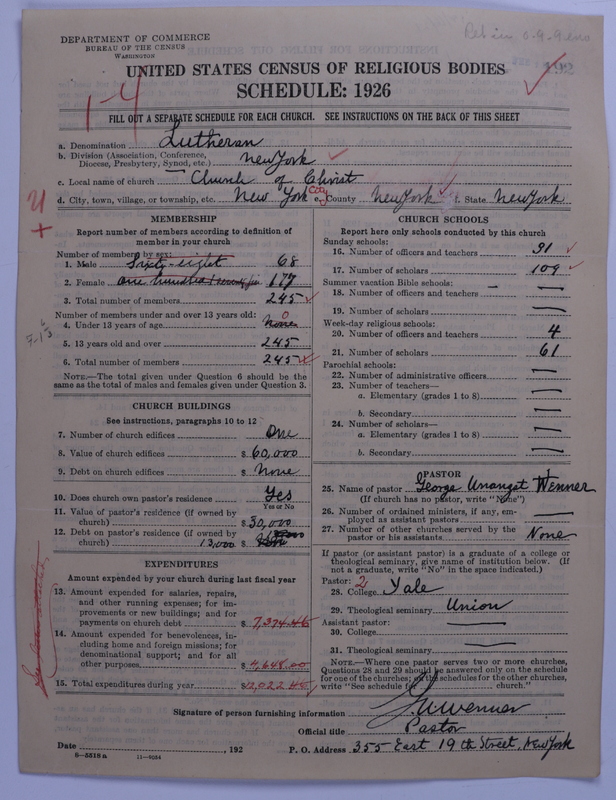 DEPARTMENT OF COMMERCE
BUREAU OF THE CENSUS
WASHINGTON
UNITED STATES CENSUS OF RELIGIOUS BODIES
SCHEDULE: 1926
1-4
FILL OUT A SEPARATE SCHEDULE FOR EACH CHURCH. SEE INSTRUCTIONS ON THE BACK OF THIS SHEET
a. Denomination Lutheran
b. Division (Association, Conference, Diocese, Presbytery, Synod, etc.) New York
c. Local name of church Church of Christ
d. City, town, village, or township, etc. New York City County New York State New York
MEMBERSHIP
Report number of members according to definition of
member in your church
Number of members by sex:
1. Male Sixty-eight 68
2. Female one hundred 177
3. Total number of members 245
Number of members under and over 13 years old: 0
4. Under 13 years of age None
5. 13 years old and over 245
6. Total number of members 245
NOTE.—The total given under Question 6 should be the
same as the total of males and females given under Question 3.
CHURCH BUILDINGS
See instructions, paragraphs 10 to 12
7. Number of church edifices One
8. Value of church edifices $ 60,000
9. Debt on church edifices $ None
10. Does church own pastor's residence Yes
Yes or No
11. Value of pastor's residence (if owned by
church) $ 30,000
12. Debt on pastor's residence (if owned by
church) 13,000 $
EXPENDITURES
Amount expended by your church during last fiscal year
13. Amount expended for salaries, repairs,
and other running expenses; for im-
provements or new buildings; and for
payments on church debt $ 7,374.45
14. Amount expended for benevolences, in-
cluding home and foreign missions; for
denominational support; and for all
other purposes $ 4,648.00
15. Total expenditures during year $ 12,022.45
CHURCH SCHOOLS
Report here only schools conducted by this church
Sunday schools:
16. Number of officers and teachers 31
17. Number of scholars 109
Summer vacation Bible schools:
18. Number of officers and teachers —
19. Number of scholars —
Week-day religious schools:
20. Number of officers and teachers 4
21. Number of scholars 61
Parochial schools:
22. Number of administrative officers —
23. Number of teachers—
a. Elementary (grades 1 to 8) —
b. Secondary —
24. Number of scholars—
a. Elementary (grades 1 to 8) —
b. Secondary —
PASTOR
25. Name of pastor George Unangst Wenner
(If church has no pastor, write "None")
26. Number of ordained ministers, if any, em-
ployed as assistant pastors —
27. Number of other churches served by the
pastor or his assistants None
If pastor (or assistant pastor) is a graduate of a college or
theological seminary, give name of institution below. (If
not a graduate, write "No" in the space indicated.)
Pastor: 2
28. College Yale
29. Theological seminary Union
Assistant pastor:
30. College —
31. Theological seminary —
NOTE.—Where one pastor serves two or more churches,
Questions 28 and 29 should be answered only on the schedule
for one of the churches; on the schedules for the other churches,
write "See schedule for church."
Signature of person furnishing information G.U.Wenner
Official title Pastor
Date , 192 P. O. Address 355 East 19th Street, New York
8—5518a 11—9034